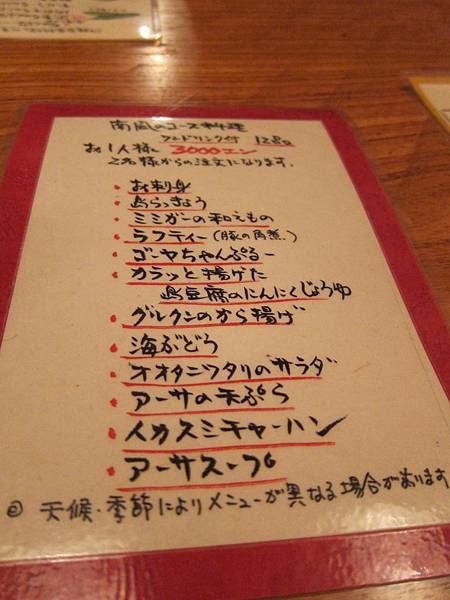 南風のコース料理
ワンドリンク付 12品
お1人様 3000エン
2名様からの注文になります。
・お刺身
・島らっきょう
・ミミガーの和えもの
・ラフティー(豚の角煮)
・ゴーヤちゃんぷるー
・カラッと揚げた
島豆腐のにんにくじょうゆ
・グルクンのから揚げ
・海がどう
・オオタニワタリのサラダ
・アーサの天ぷら
・イカスミチャーハン
・アーサスープ
天候・季節によりメニューが異なる場合があります